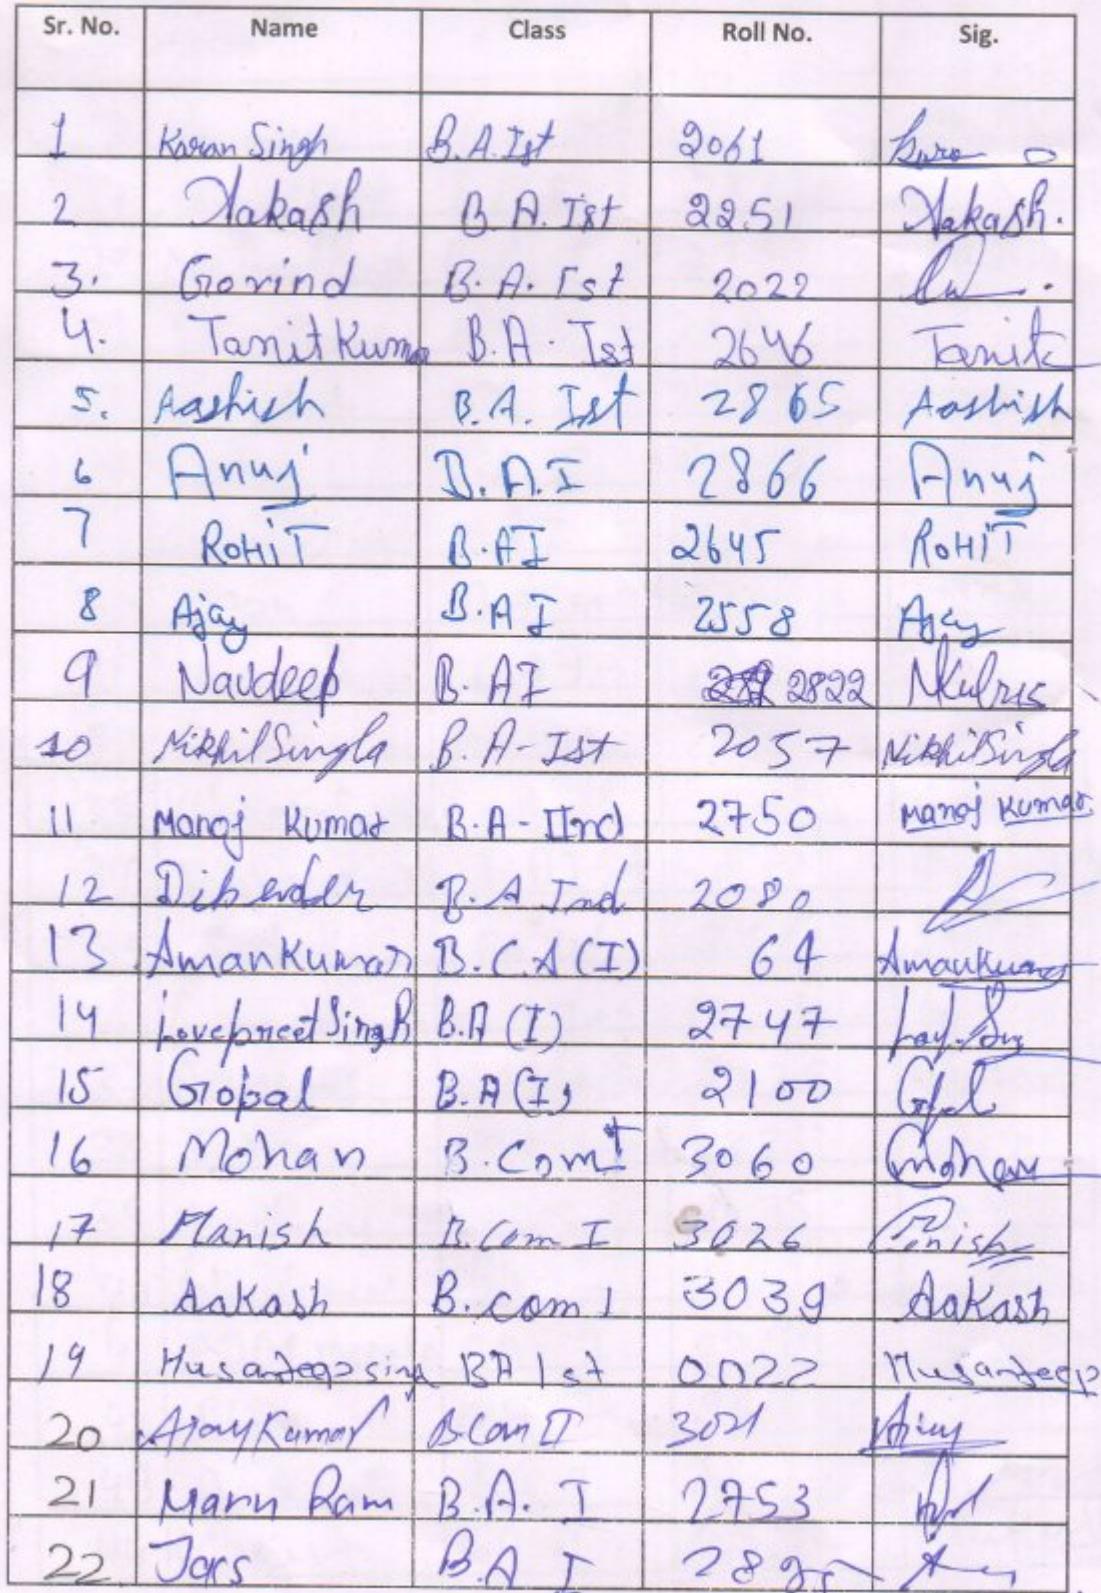 Sr. No. Name Class Roll No. Sig.
1 Karan Singh B.A.Ist 2061
2 Aakash B.A.Ist 2251 Aakash.
3. Govind B.A.Ist 2022
4. Tanit Kuma B.A. Ist 2646 Tanit
5. Aashish B.A. Ist 2865 Aashish
6 Anuj B.A.I 2866 Anuj
7 RoHiT B.AI 2645 RoHiT
8 Ajay B.A I 2558 Ajay
9 Navdeep B.AI 2822
10 Nikhil Singla B.A-Ist 2057 Nikhil Singla
11 Manoj Kumar B.A-IInd 2750 Manoj Kumar.
12 B.A Ind 2080
13 Aman Kumar B.C.A (I) 64 Aman Kumar
14 Lovepreet Singh B.A (I) 2747
15 Gopal B.A (I) 2100
16 Mohan B.Com I 3060 Mohan
17 Manish B.Com I 3026
18 Aakash B.com I 3039 Aakash
19 Husandeep sing BA 1st 0022 Husandeep
20 Ajay Kumar BCom II 3021 Ajay
21 Ram B.A. I 2753
22 B.A I